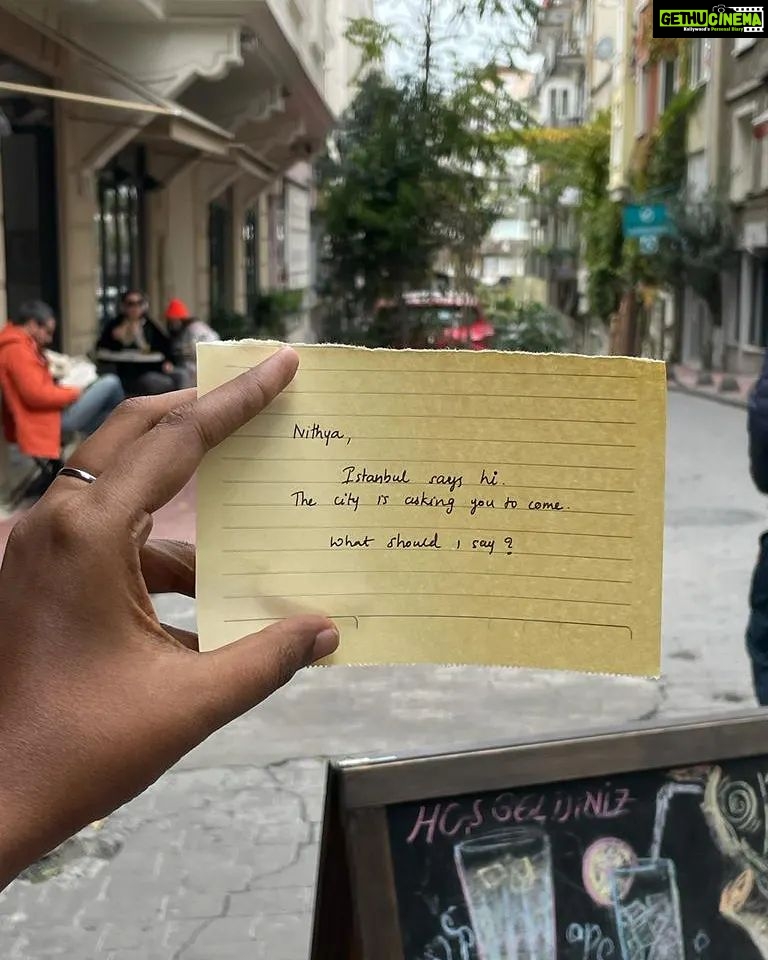 GETHUCINEMA
Kollywood's Personal Diary
Nithya,
Istanbul says hi.
The city is asking you to come.
What should I say?
HOŞGELDİNİZ